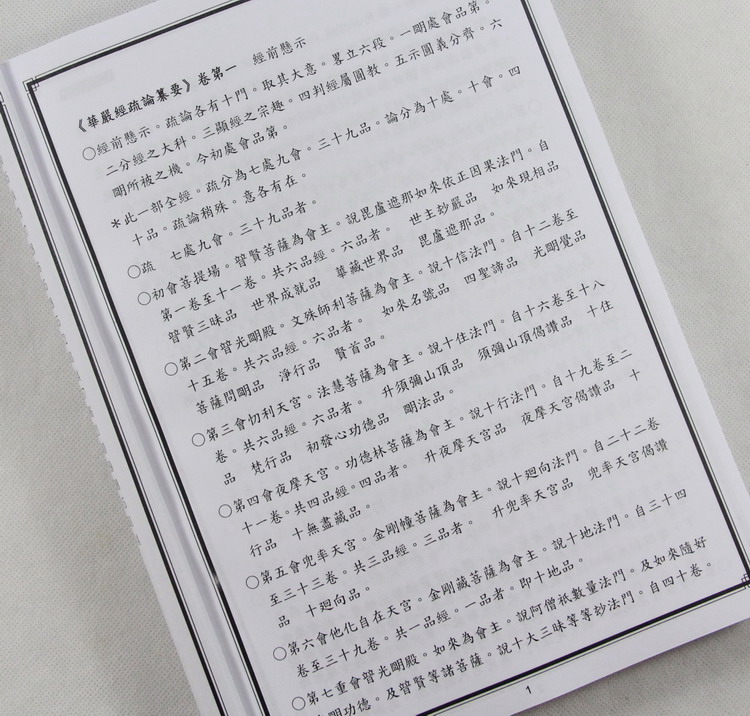 《華嚴經疏論纂要》卷第一　經前懸示
○經前懸示。疏論各有十門。取其大意。畧立六段。一明處會品第。
二分經之大科。三顯經之宗趣。四判經屬圓教。五示圓義分齊。六
明所被之機。今初處會品第。
＊此一部全經。疏分為七處九會。三十九品。論分為十處。十會。四
十品。疏論稍殊。意各有在。
○疏　七處九會。三十九品者。
○初會菩提場。普賢菩薩為會主。說毘盧遮那如來依正因果法門。自
第一卷至十一卷。共六品經。六品者。　世主玅嚴品　如來現相品
普賢三昧品　世界成就品　華藏世界品　毘盧遮那品。
○第二會普光明殿。文殊師利菩薩為會主。說十信法門。自十二卷至
十五卷。共六品經。六品者。　如來名號品　四聖諦品　光明覺品
菩薩問明品　淨行品　賢首品。
○第三會忉利天宮。法慧菩薩為會主。說十住法門。自十六卷至十八
卷。共六品經。六品者。　升須彌山頂品　須彌山頂偈讚品　十住
品　梵行品　初發心功德品　明法品。
○第四會夜摩天宮。功德林菩薩為會主。說十行法門。自十九卷至二
十一卷。共四品經。四品者。　升夜摩天宮品　夜摩天宮偈讚品　十
行品　十無盡藏品。
○第五會兜率天宮。金剛幢菩薩為會主。說十廻向法門。自二十二卷
至三十三卷。共三品經。三品者。　升兜率天宮品　兜率天宮偈讚
品　十廻向品。
○第六會他化自在天宮。金剛藏菩薩為會主。說十地法門。自三十四
卷至三十九卷。共一品經。一品者。即十地品。
○第七重會普光明殿。如來為會主。說阿僧祇數量法門。及如來隨好
光明功德。及普賢等諸菩薩。說十大三昧等等玅法門。自四十卷。
1